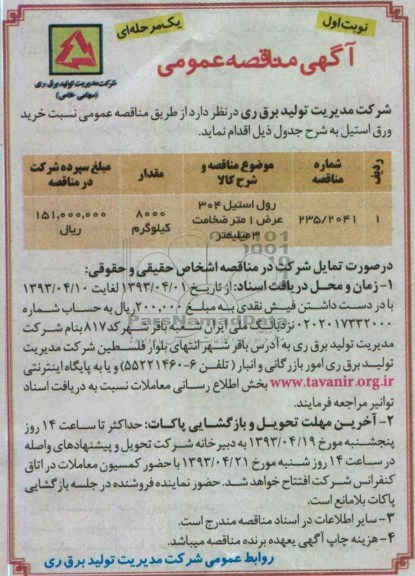 نوبت اول
یک مرحله‌ای
آگهی مناقصه عمومی
شرکت مدیریت تولید برق ری
(سهامی خاص)
شرکت مدیریت تولید برق ری در نظر دارد از طریق مناقصه عمومی نسبت خرید
ورق استیل به شرح جدول ذیل اقدام نماید.
ردیف شماره مناقصه موضوع مناقصه و شرح کالا مقدار مبلغ سپرده شرکت در مناقصه
۱ ۲۳۵/۲۰۴۱ رول استیل ۳۰۴ عرض ۱ متر ضخامت ۳ میلیمتر ۸۰۰۰ کیلوگرم ۱۵۱,۰۰۰,۰۰۰ ریال
در صورت تمایل شرکت در مناقصه اشخاص حقیقی و حقوقی:
۱- زمان و محل دریافت اسناد: از تاریخ ۱۳۹۳/۰۴/۰۱ لغایت ۱۳۹۳/۰۴/۱۰
با در دست داشتن فیش نقدی به مبلغ ۲۰۰,۰۰۰ ریال به حساب شماره
۰۲۰۲۰۱۷۳۳۲۰۰۰ نزد بانک ملی ایران شعبه باقر شهر کد ۸۱۷ بنام شرکت
مدیریت تولید برق ری به آدرس باقر شهر انتهای بلوار فلسطین شرکت مدیریت
تولید برق ری امور بازرگانی و انبار (تلفن ۶-۵۵۲۲۱۴۶۰) و یا به پایگاه اینترنتی
www.tavanir.org.ir بخش اطلاع رسانی معاملات نسبت به دریافت اسناد
توانیر مراجعه فرمایند.
۲- آخرین مهلت تحویل و بازگشایی پاکات: حداکثر تا ساعت ۱۴ روز
پنجشنبه مورخ ۱۳۹۳/۰۴/۱۹ به دبیرخانه شرکت تحویل و پیشنهادهای واصله
در ساعت ۱۴ روز شنبه مورخ ۱۳۹۳/۰۴/۲۱ با حضور کمسیون معاملات در اتاق
کنفرانس شرکت افتتاح خواهد شد. حضور نماینده فروشنده در جلسه بازگشایی
پاکات بلامانع است.
۳- سایر اطلاعات در اسناد مناقصه مندرج است.
۴- هزینه چاپ آگهی بعهده برنده مناقصه میباشد.
روابط عمومی شرکت مدیریت تولید برق ری